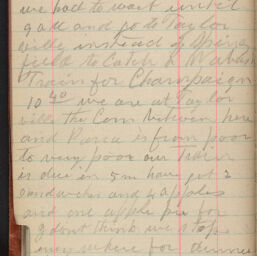 we had to wait until
9 and go to Taylor
ville instead of Spring
field to catch a Wabash
Train for Champaign
10 20 we are at Taylor
ville the Corn between here
and Pana is from poor
to very poor our Train
is due in 5 m have got 2
sandwiches and 4 apples
and one apple pie for
I dont think we stop
any where for dinner